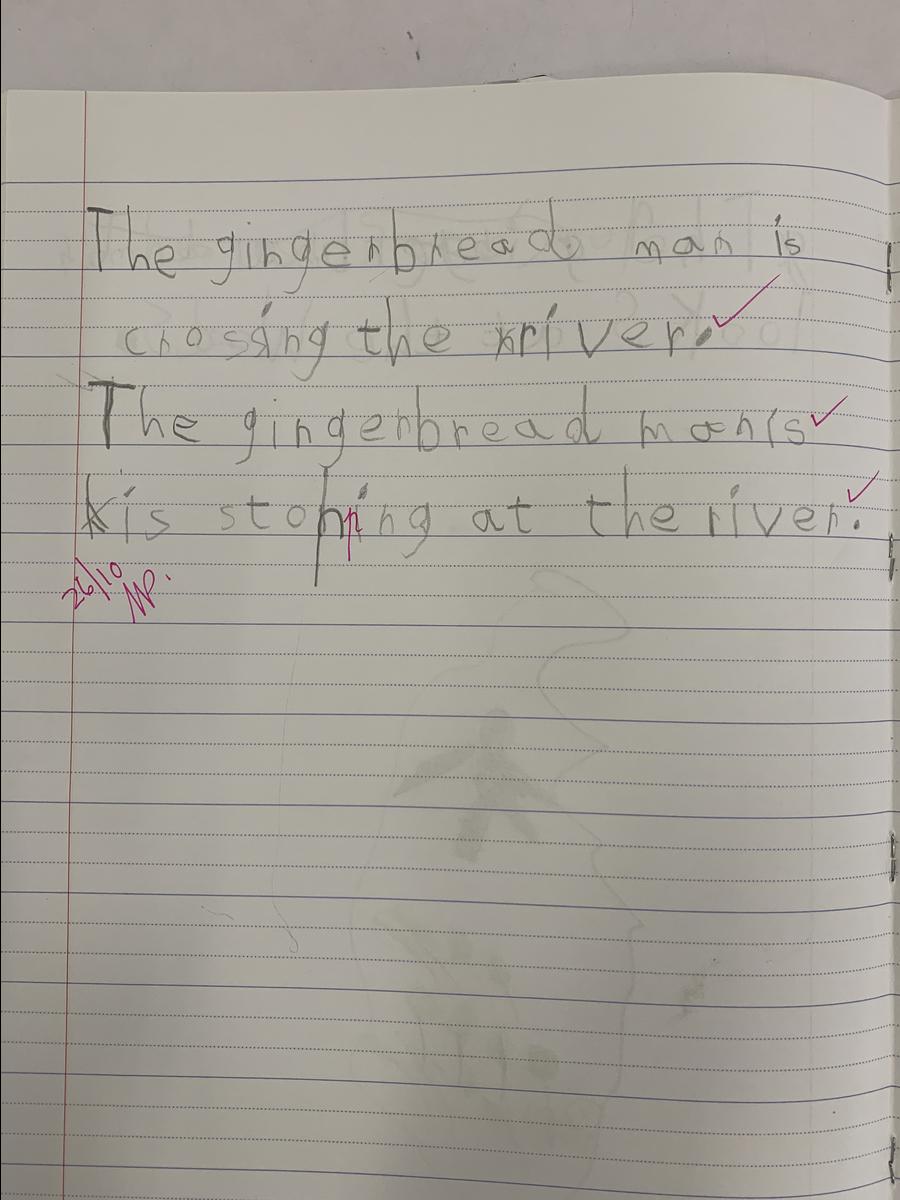 The gingerbread man is
crossing the river.
The gingerbread man is
is stopping at the river.
26/10